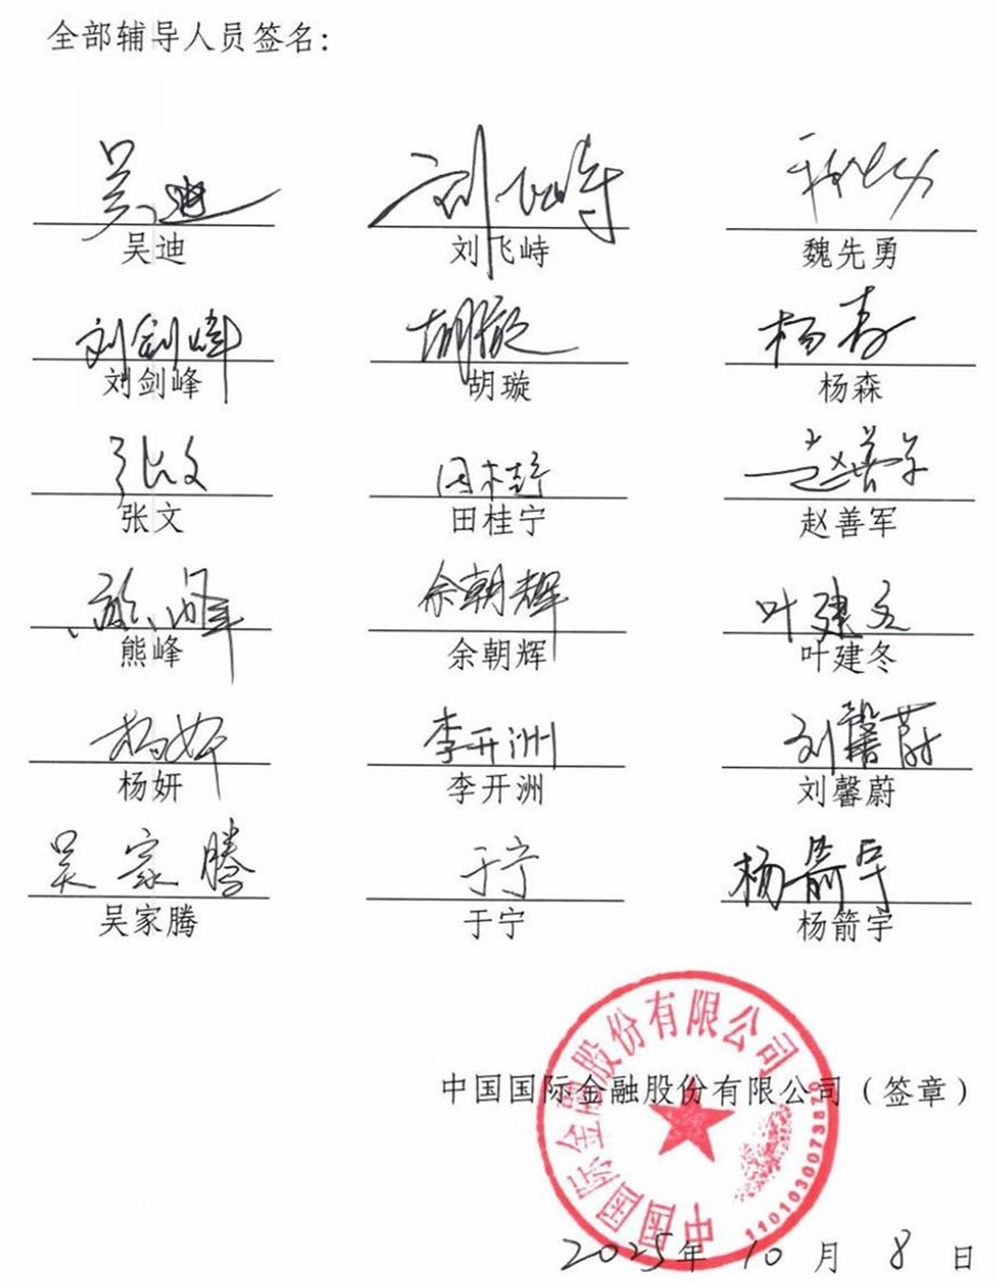 全部辅导人员签名：
吴迪 刘飞峙
吴迪 刘飞峙 魏先勇
刘剑峰 胡璇 杨森
刘剑峰 胡璇 杨森
张文 田桂宁 赵善军
张文 田桂宁 赵善军
熊峰 余朝辉 叶建冬
熊峰 余朝辉 叶建冬
杨妍 李开洲 刘馨蔚
杨妍 李开洲 刘馨蔚
吴家腾 于宁 杨箭宇
吴家腾 于宁 杨箭宇
中国国际金融股份有限公司
中国国际金融股份有限公司（签章）
2025年 10 月 8 日